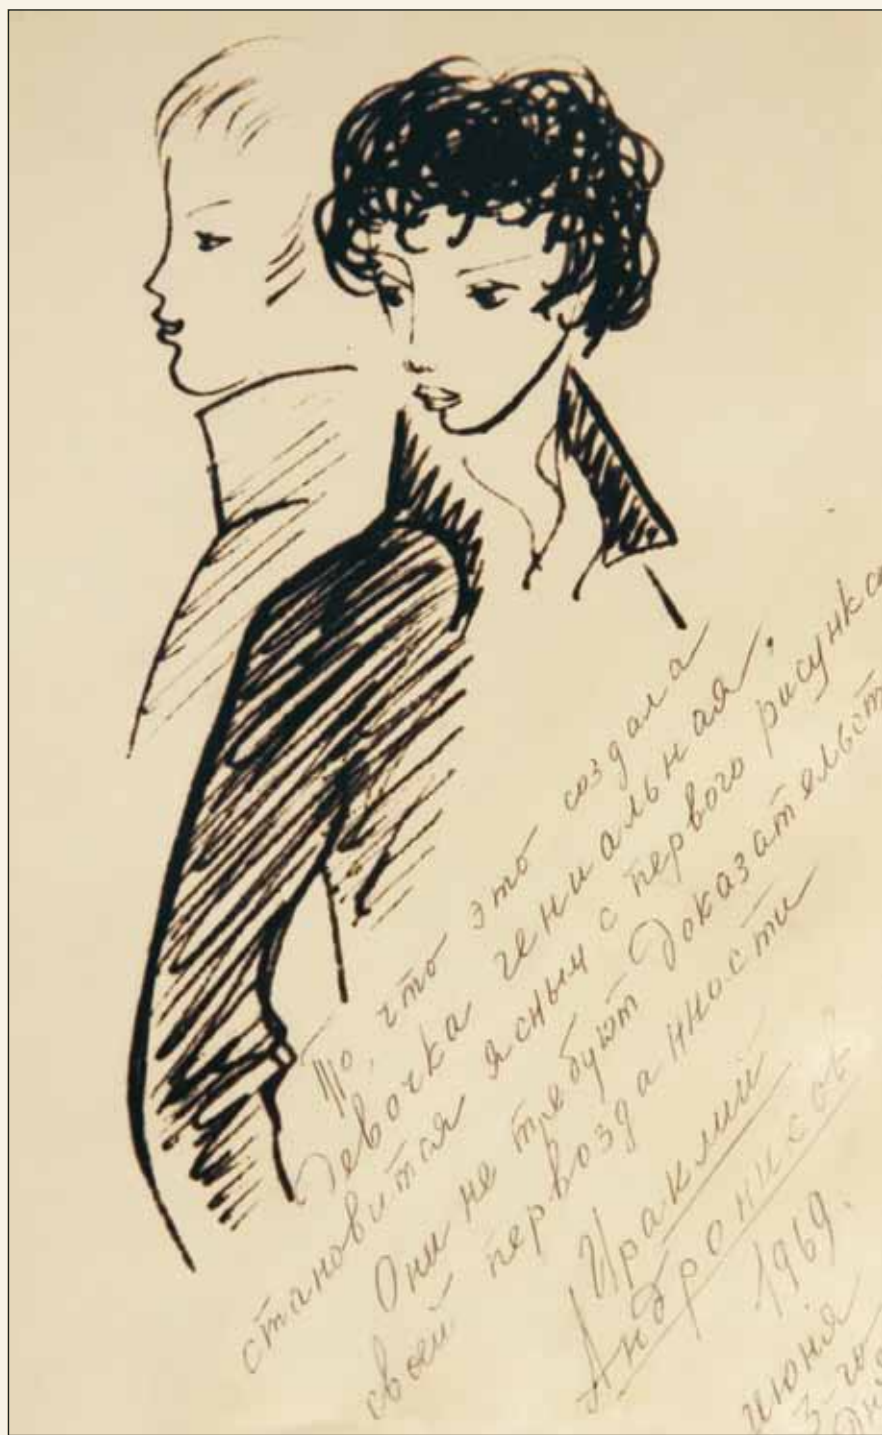 То, что это создала
девочка гениальная,
становится ясным с первого рисунка
Они не требуют доказательств
своей первозданности
Ираклий
Андроников
1969.
июня
3-го
дня